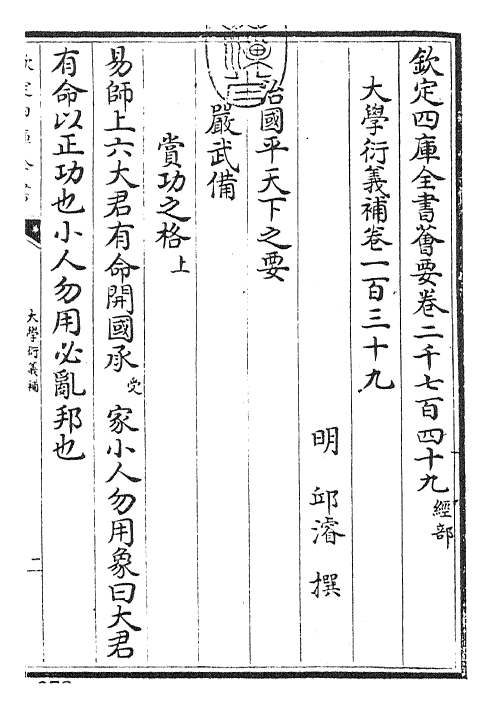 欽定四庫全書薈要卷二千七百四十九 經部
大學衍義補卷一百三十九
明 邱濬 撰
治國平天下之要
嚴武備
賞功之格上
易師上六大君有命開國承受家小人勿用象曰大君
有命以正功也小人勿用必亂邦也
大學衍義補
二